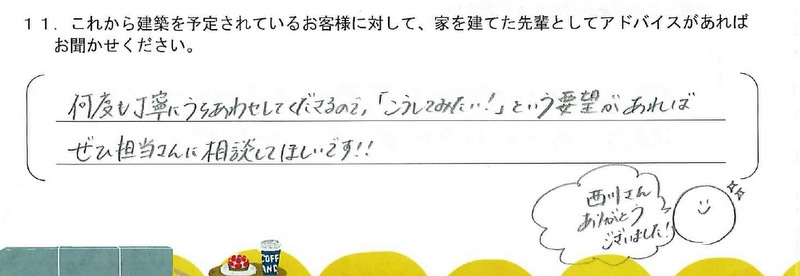 11．これから建築を予定されているお客様に対して、家を建てた先輩としてアドバイスがあれば
お聞かせください。
何度も丁寧にうちあわせしてくださるので、「こうしてみたい！」という要望があれば
ぜひ担当さんに相談してほしいです!!
西川さん
ありがとう
ございました!
COFF
AND